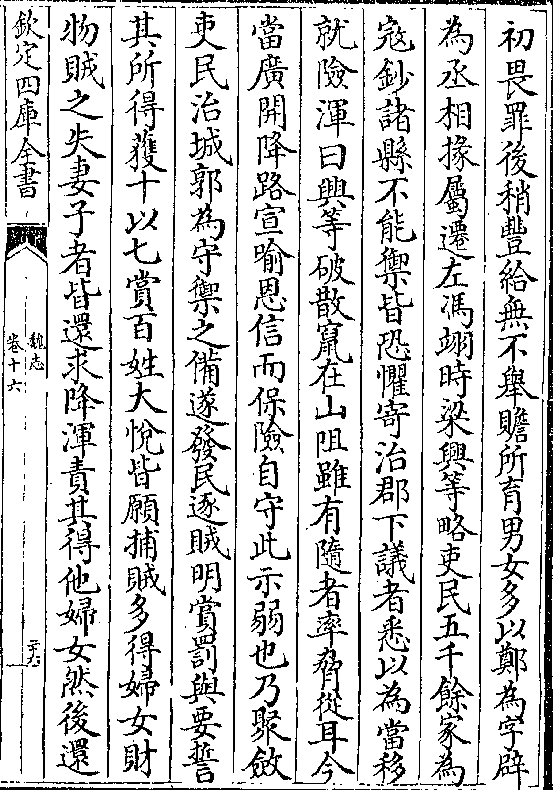 初畏罪後稍豐給無不舉贍所育男女多以鄭為字辟
為丞相掾屬遷左馮翊時梁興等略吏民五千餘家為
寇鈔諸縣不能禦皆恐懼寄治郡下議者悉以為當移
就險渾曰興等破散竄在山阻雖有隨者率脅從耳今
當廣開降路宣喻恩信而保險自守此示弱也乃聚斂
吏民治城郭為守禦之備遂發民逐賊明賞罰與要誓
其所得獲十以七賞百姓大悅皆願捕賊多得婦女財
物賊之失妻子者皆還求降渾責其得他婦女然後還
欽定四庫全書
魏志
卷十六
二十六